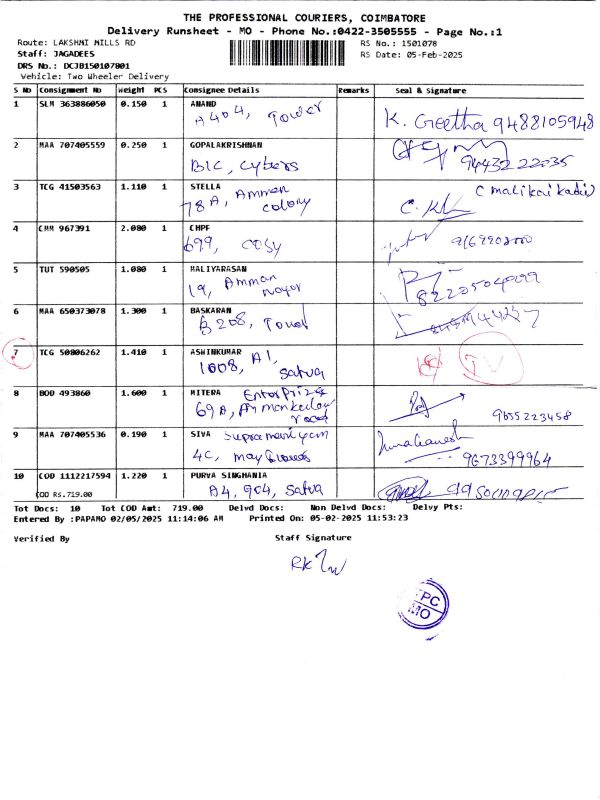 THE PROFESSIONAL COURIERS, COIMBATORE
Delivery Runsheet - MO - Phone No.:0422-3505555 - Page No.:1
Route: LAKSHMI MILLS RD
RS No.: 1501078
Staff: JAGADEES
RS Date: 05-Feb-2025
DRS No.: DCJB150107801
Vehicle: Two Wheeler Delivery
S No Consignment No Weight PCS Consignee Details Remarks Seal & Signature
1 SLM 363886050 0.150 1 ANAND
A 404, Tower K. Geetha 9488105948
2 MAA 707405559 0.250 1 GOPALAKRISHNAN
B1C, Cybers 9443222035
3 TCG 41503563 1.110 1 STELLA
78A, Amman colony
4 CMM 967391 2.080 1 CHPF
699, cosy
5 TUT 590505 1.080 1 MALIYARASAN
19, Amman nagar
6 MAA 650373078 1.300 1 BASKARAN
B 208,
7 TCG 50806262 1.410 1 ASWINKUMAR
1008, A1, Satva
8 BOD 493860 1.600 1 MITERA Enterprizes
69A, 9655223458
9 MAA 707405536 0.190 1 SIVA
4C, 9673399964
10 COD 1112217594 1.220 1 PURVA SINGHANIA
COD RS.719.00 A4, 904, Satva
Tot Docs: 10 Tot COD Amt: 719.00 Delvd Docs: Non Delvd Docs: Delvy Pts:
Entered By :PAPAMO 02/05/2025 11:14:06 AM Printed On: 05-02-2025 11:53:23
Verified By Staff Signature
PC
MO